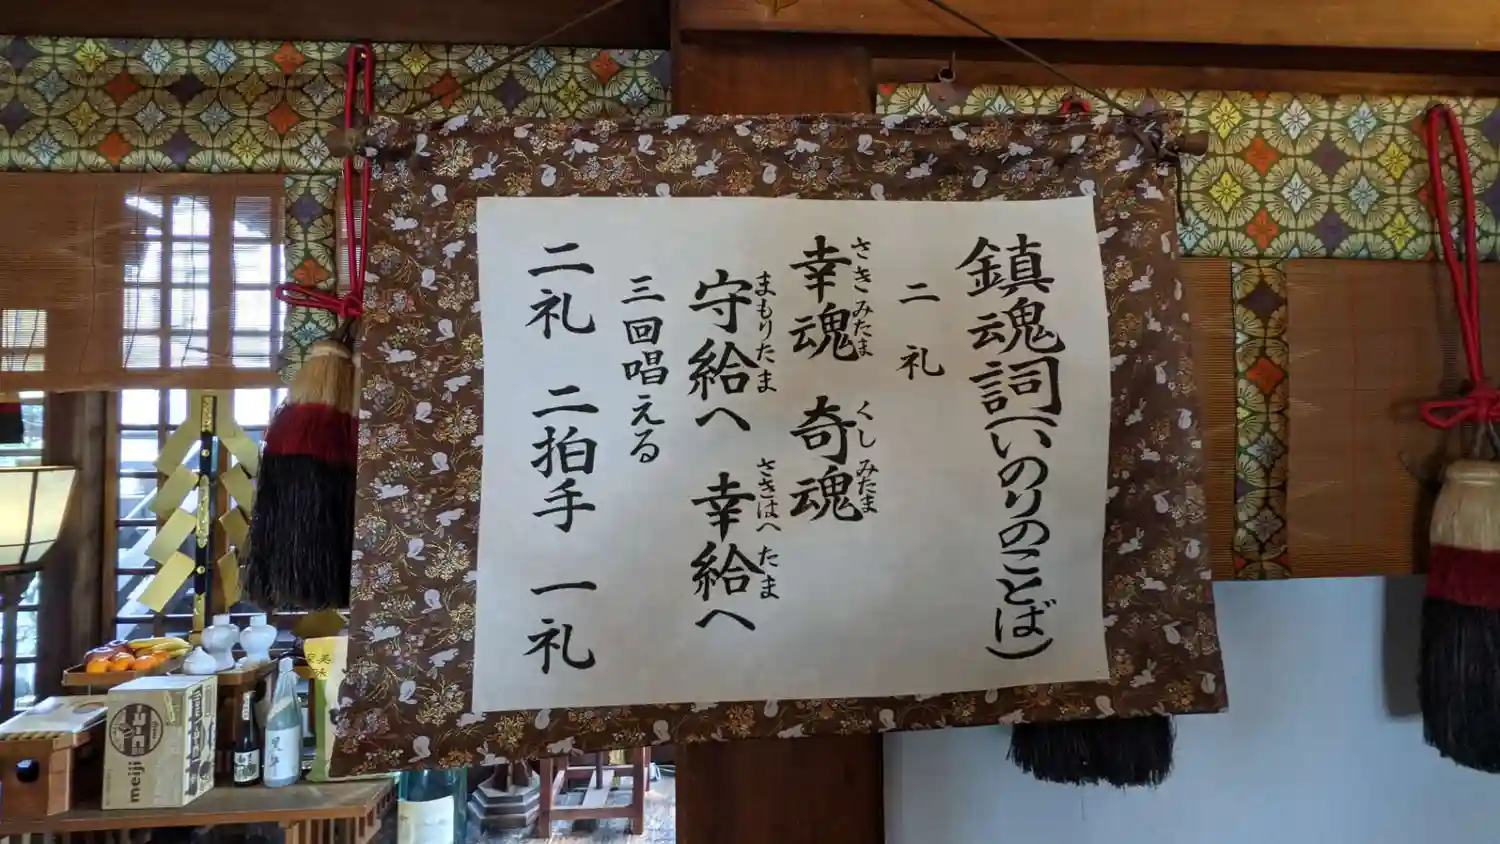 鎮魂詞(いのりのことば)
二礼
幸魂 奇魂
さきみたま くしみたま
守給へ 幸給へ
まもりたま さきはへたま
三回唱える
二礼 二拍手 一礼
meiji